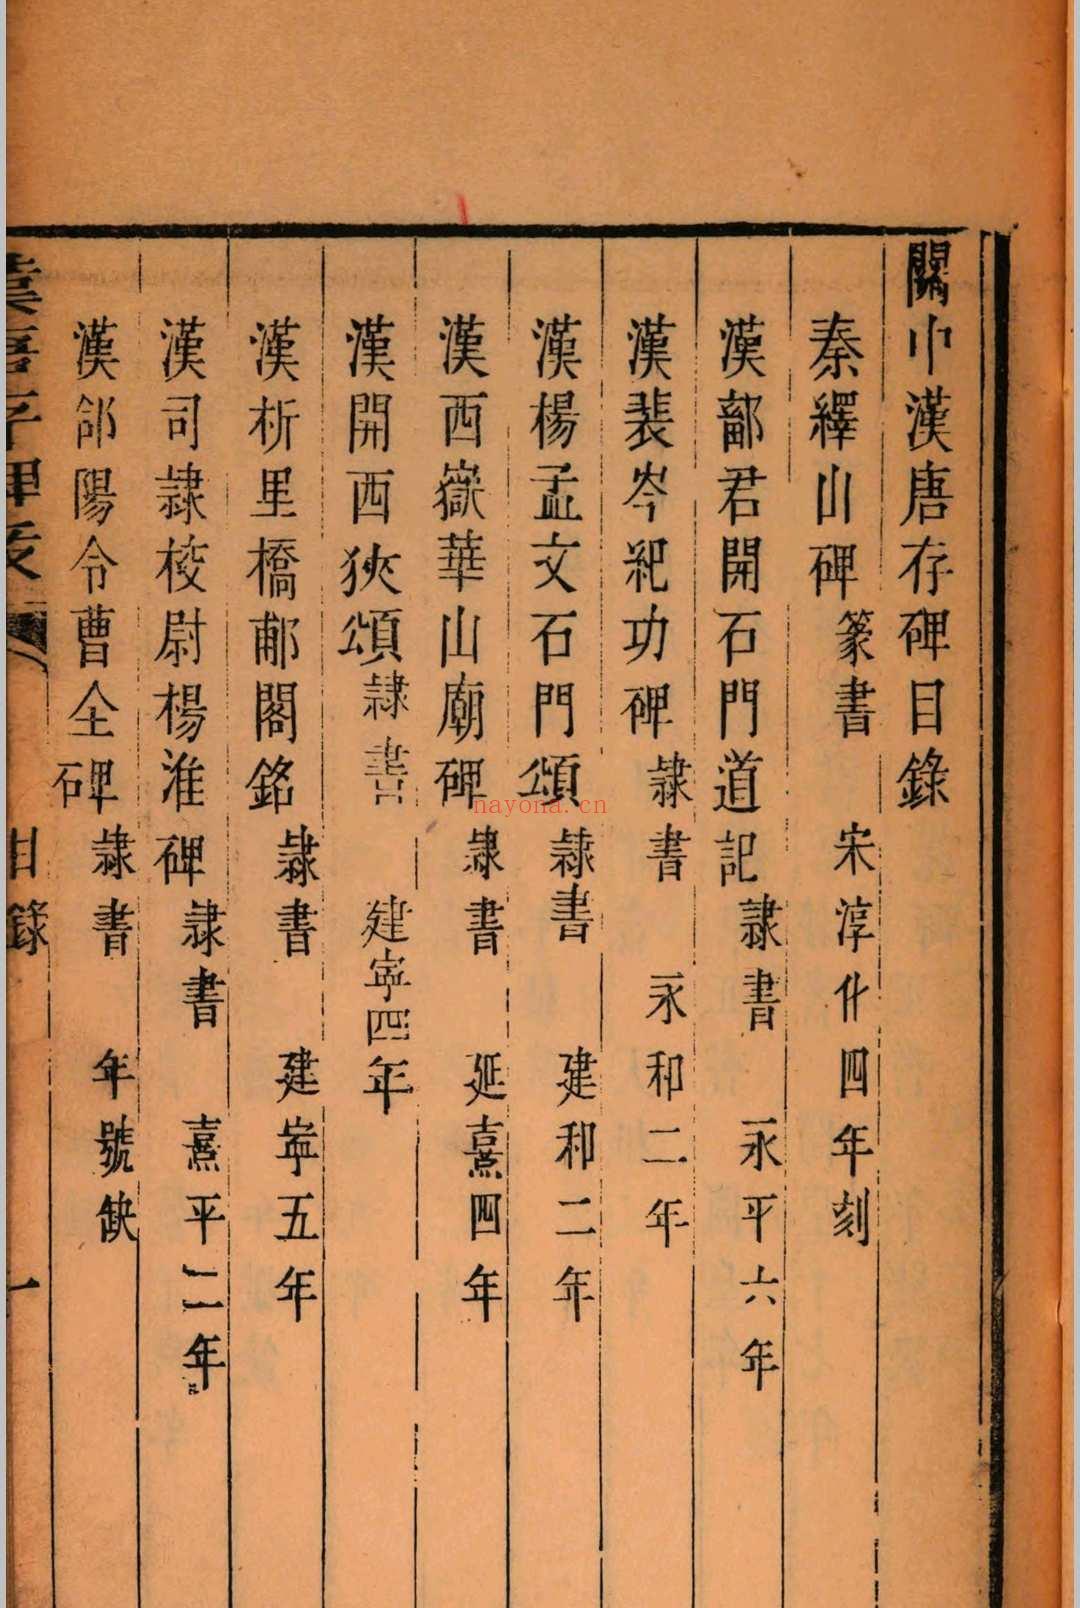 關中漢唐存碑目錄
秦繹山碑 篆書 宋淳化四年刻
漢鄐君開石門道記 隷書 永平六年
漢裴岑紀功碑 隷書 永和二年
漢楊孟文石門頌 隷書 建和二年
漢西嶽華山廟碑 隷書 延熹四年
漢開西狹頌 隷書 建寧四年
漢析里橋郙閣銘 隷書 建寧五年
漢司隷校尉楊淮碑 隷書 熹平二年
漢郃陽令曹全碑 隷書 年號缺
漢唐存碑跋 目錄 一
nayona.cn